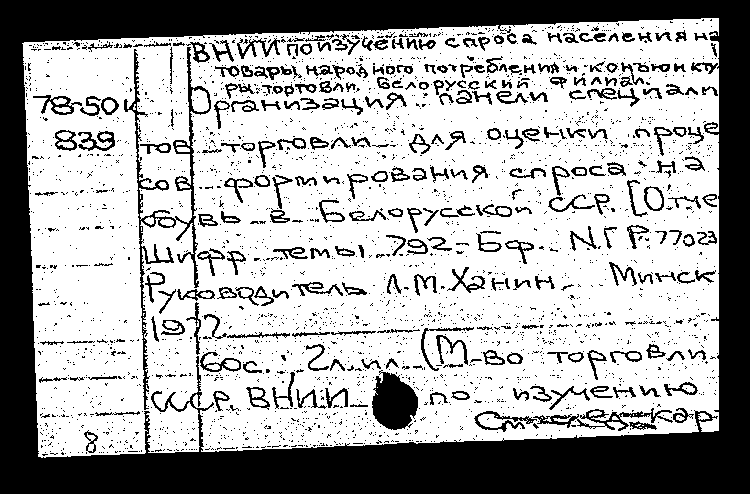 ВНИИ по изучению спроса населения на
товары народного потребления и конъюнкту
ры торговли. Белорусский филиал.
78-50к Организация панели специалис
839 тов торговли для оценки проце
сов формирования спроса на
обувь в Белорусской ССР. [Отче
Шифр темы 792-Бф. N.Г.Р. 77023
Руководитель Л.М.Ханин. Минск
1977
60с.; 2л.ил. (М-во торговли
СССР. ВНИИ по изучению
См. след. кар
8